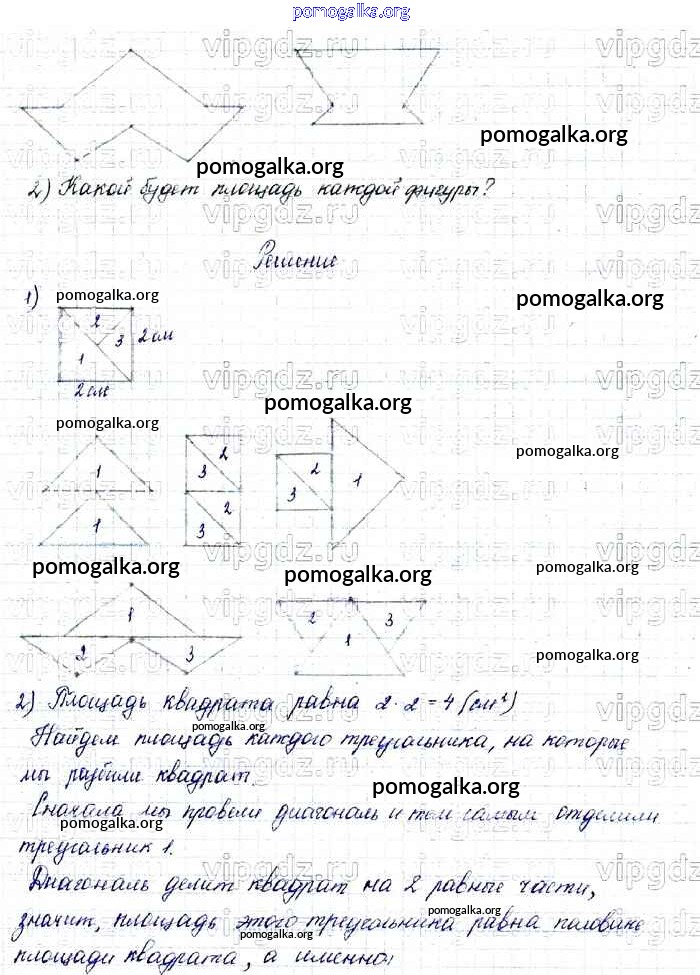 pomogalka.org
vipgdz.ru vipgdz.ru vipgdz
pomogalka.org
pomogalka.org
2) Какой будет площадь каждой фигуры?
Решение
1) pomogalka.org
pomogalka.org
2
3 2 см
1
2 см
pomogalka.org
pomogalka.org
pomogalka.org
1 3 2 2 1
3
1 3 2
pomogalka.org
pomogalka.org
pomogalka.org
1 2 3
2 3 1
pomogalka.org
2) Площадь квадрата равна 2 · 2 = 4 (см²)
pomogalka.org
Найдем площадь каждого треугольника, на которые
мы разбили квадрат.
pomogalka.org
Сначала мы провели диагональ и тем самым отделили
pomogalka.org
треугольник 1.
Диагональ делит квадрат на 2 равные части,
pomogalka.org
значит, площадь этого треугольника равна половине
pomogalka.org
площади квадрата, а именно: